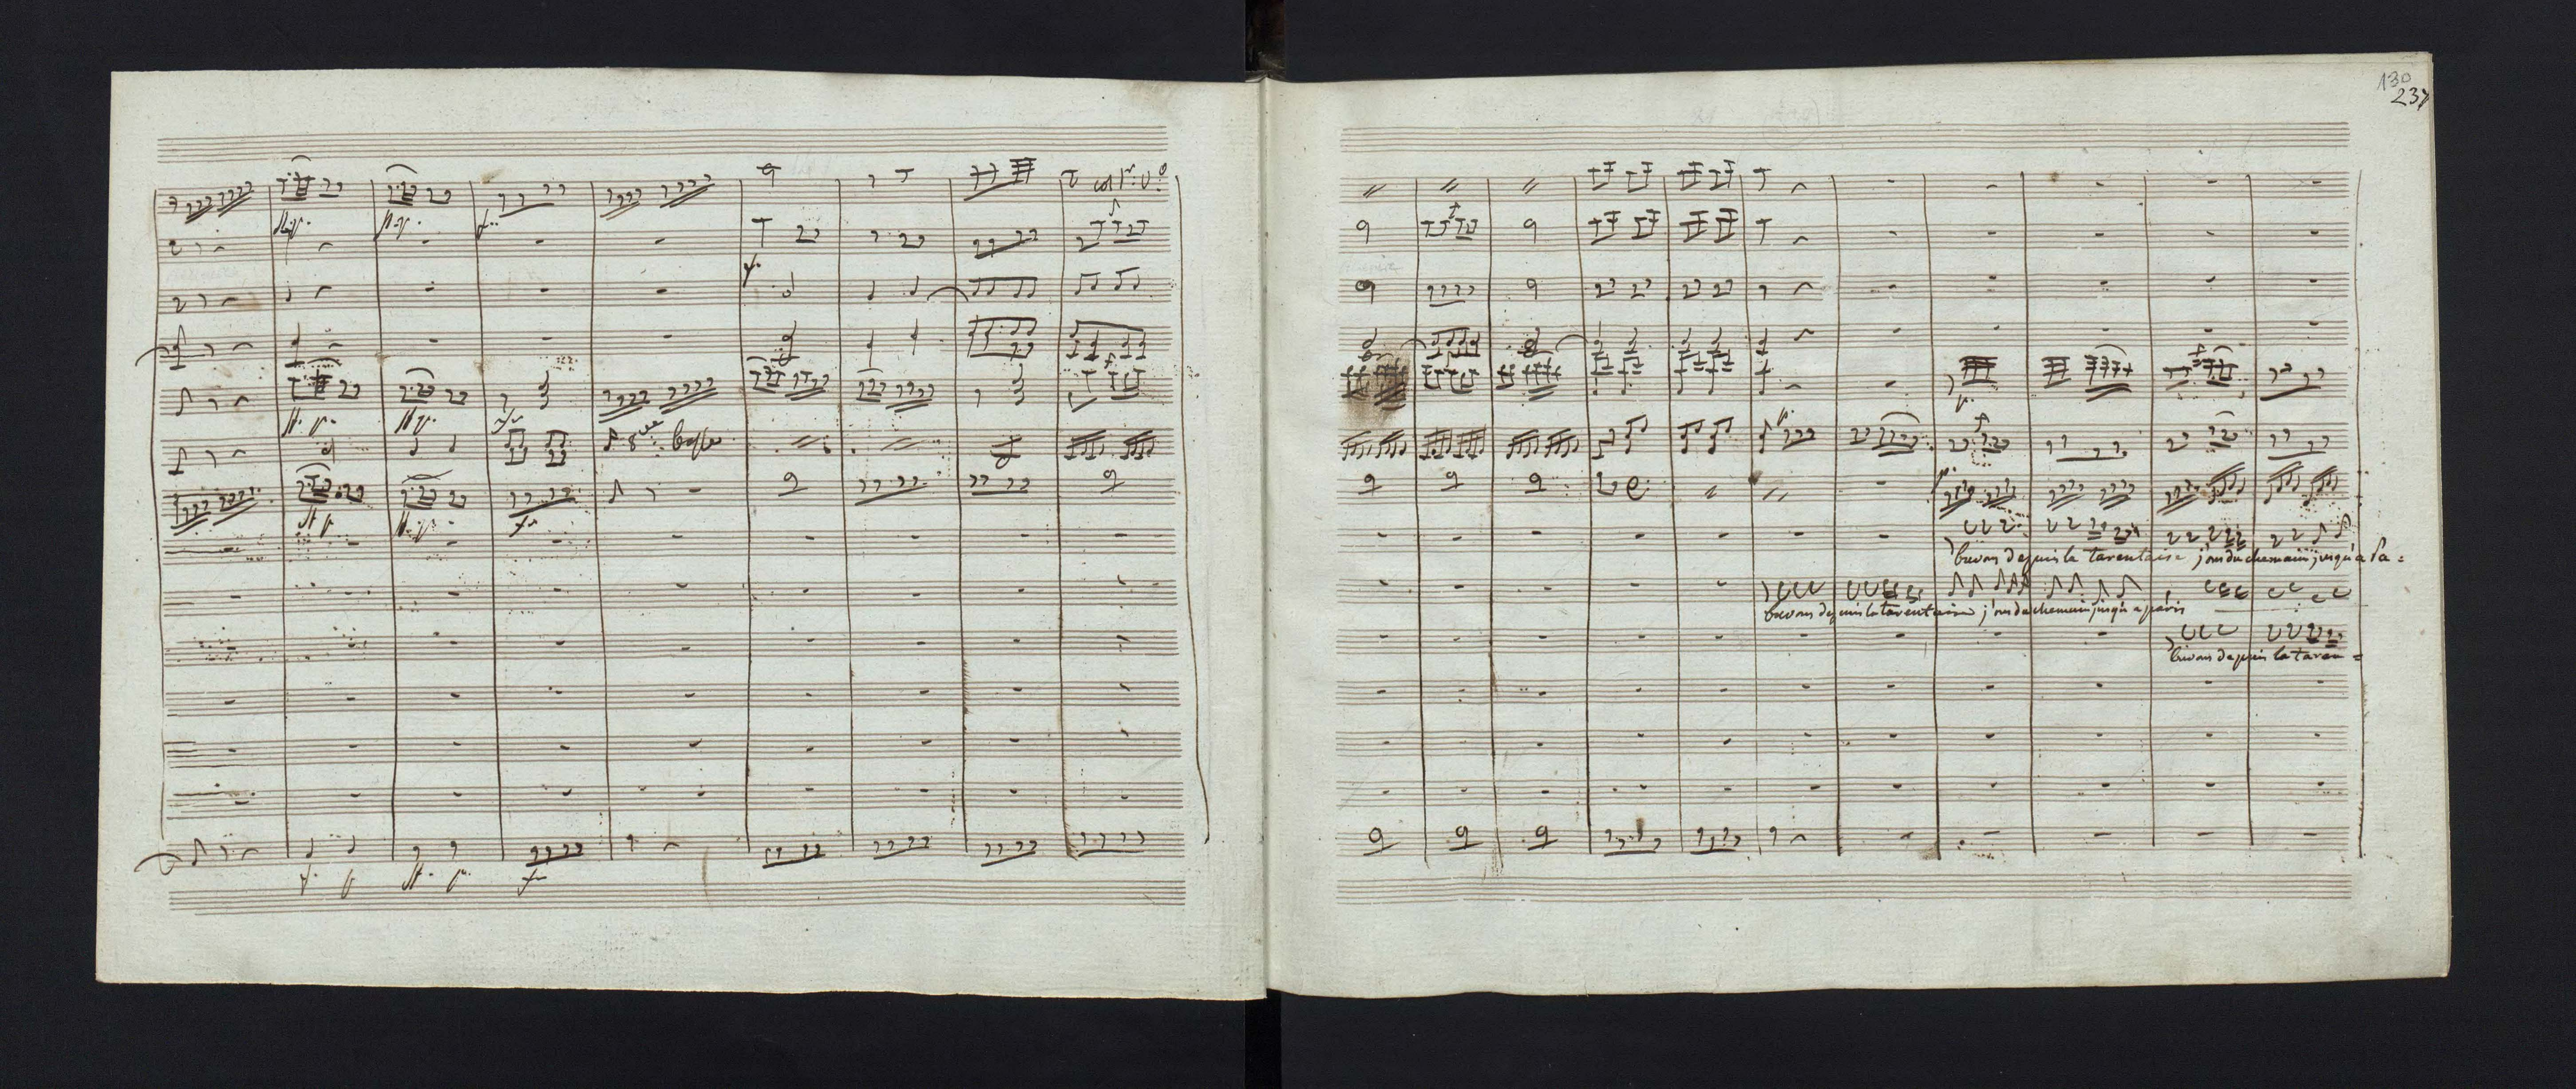 130
237
col 1º: vº
p.
8ve basse
buvons depuis la tarentaise j'ons du chemain jusqu'a Pa=
buvons depuis la tarentaise j'ons du chemain jusqu'a paris
buvons depuis la taren=